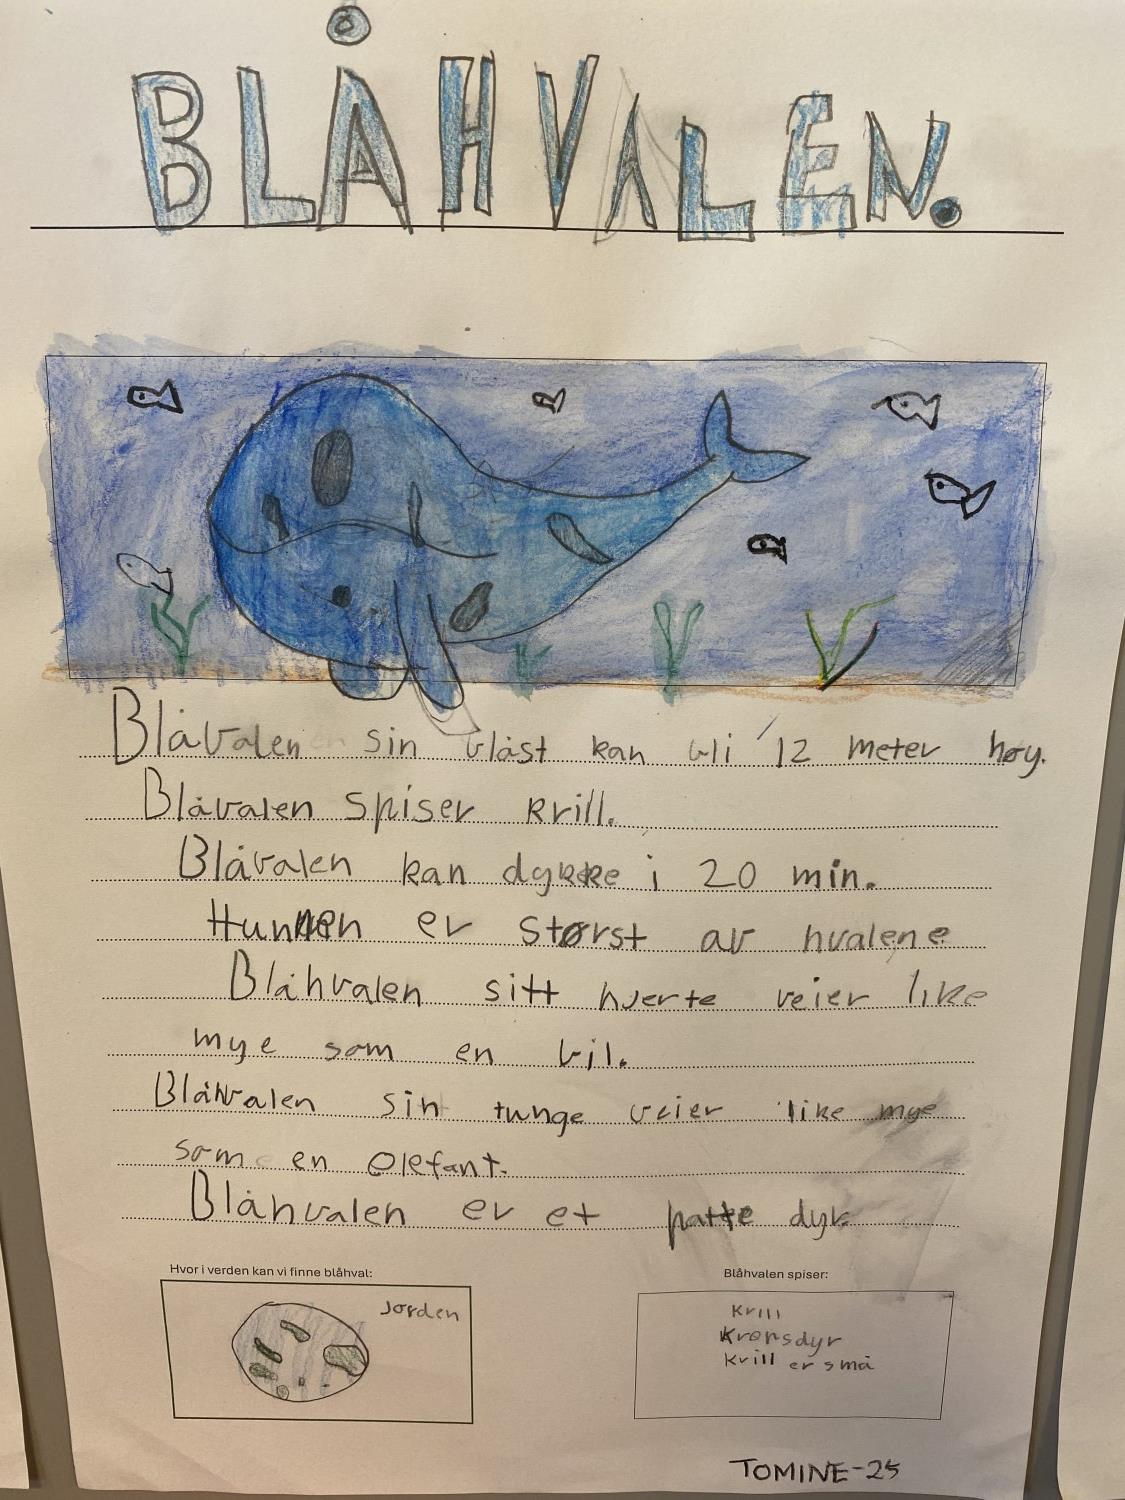 BLÅHVALEN.
Blåvalen sin blåst kan bli 12 meter høy.
Blåvalen spiser krill.
Blåvalen kan dykke i 20 min.
Hunnen er størst av hvalene
Blåhvalen sitt hjerte veier like
mye som en bil.
Blåhvalen sin tunge veier like mye
som en elefant.
Blåhvalen er et patte dyr.
Hvor i verden kan vi finne blåhval:
Jorden
Blåhvalen spiser:
Krill
Krepsdyr
Krill er små
TOMINE-25